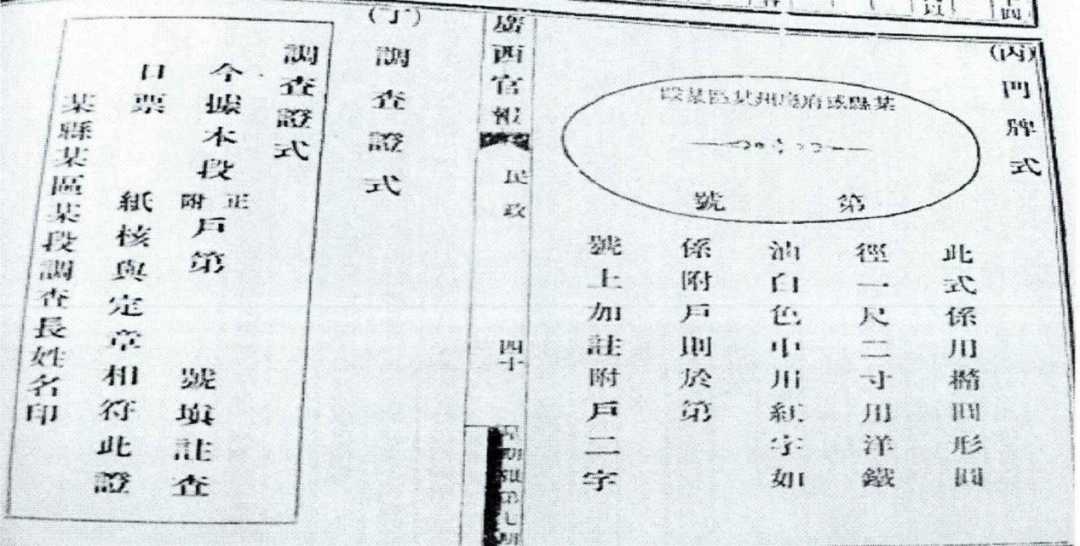 (丙)門牌式
某縣或府廳州某區某段
第 號
此式係用橢圓形圓
徑一尺二寸用洋鐵
油白色中用紅字如
係附戶則於第
號上加註附戶二字
廣西官報 民政 四十
(丁)調查證式
調查證式
今據本段正附戶第 號填註查
口票 紙核與定章相符此證
某縣某區某段調查長姓名印